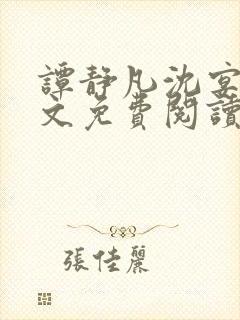 譚靜凡沈宴
文免費閱讀
張佳麗